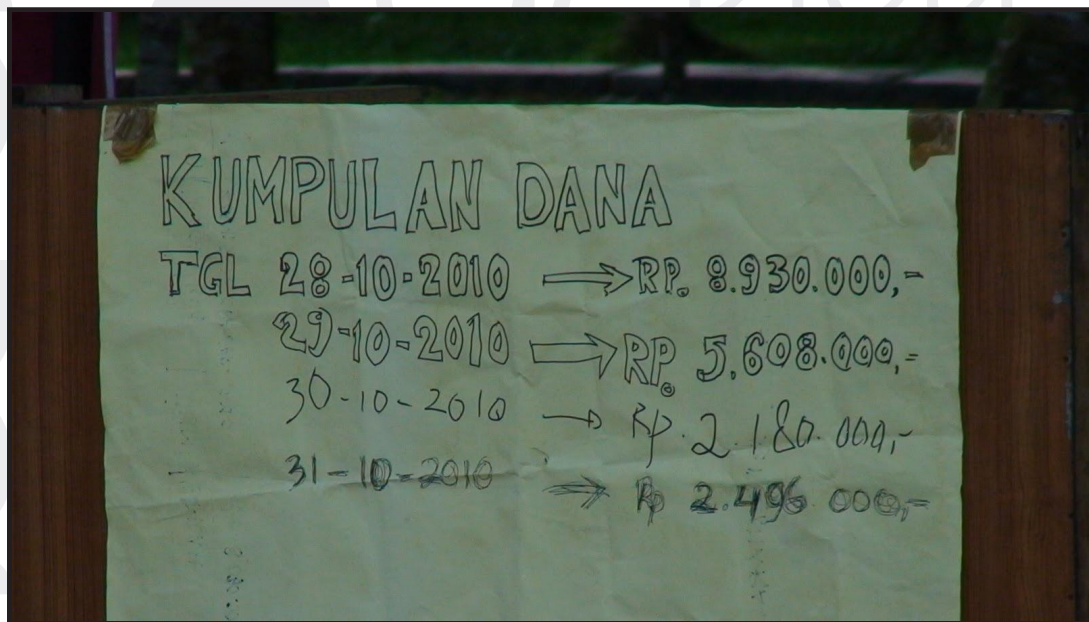 KUMPULAN DANA
TGL 28-10-2010 → RP. 8.930.000,-
29-10-2010 → RP. 5.608.000,=
30-10-2010 → Rp. 2.180.000,-
31-10-2010 → Rp 2.496.000,-